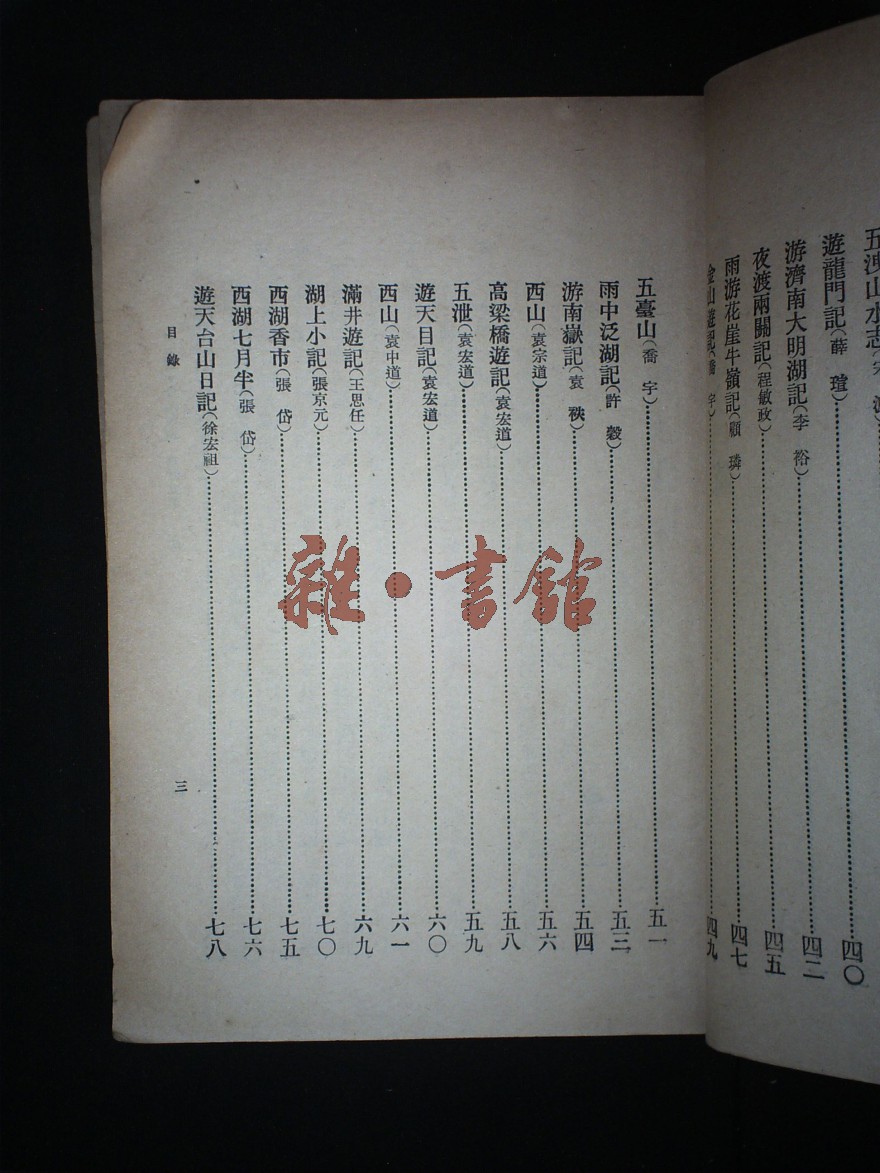 五洩山水志（宋濂）
遊龍門記（薛瑄）四〇
游濟南大明湖記（李裕）四二
夜渡兩關記（程敏政）四五
雨游花崖牛嶺記（顧璘）四七
金山遊記（喬宇）四九
五臺山（喬宇）五一
雨中泛湖記（許穀）五三
游南嶽記（袁袠）五四
西山（袁宗道）五六
高梁橋遊記（袁宏道）五八
五泄（袁宏道）五九
遊天目記（袁宏道）六〇
西山（袁中道）六一
滿井遊記（王思任）六九
湖上小記（張京元）七〇
西湖香市（張岱）七五
西湖七月半（張岱）七六
遊天台山日記（徐宏祖）七八
目錄
三
雜·書館